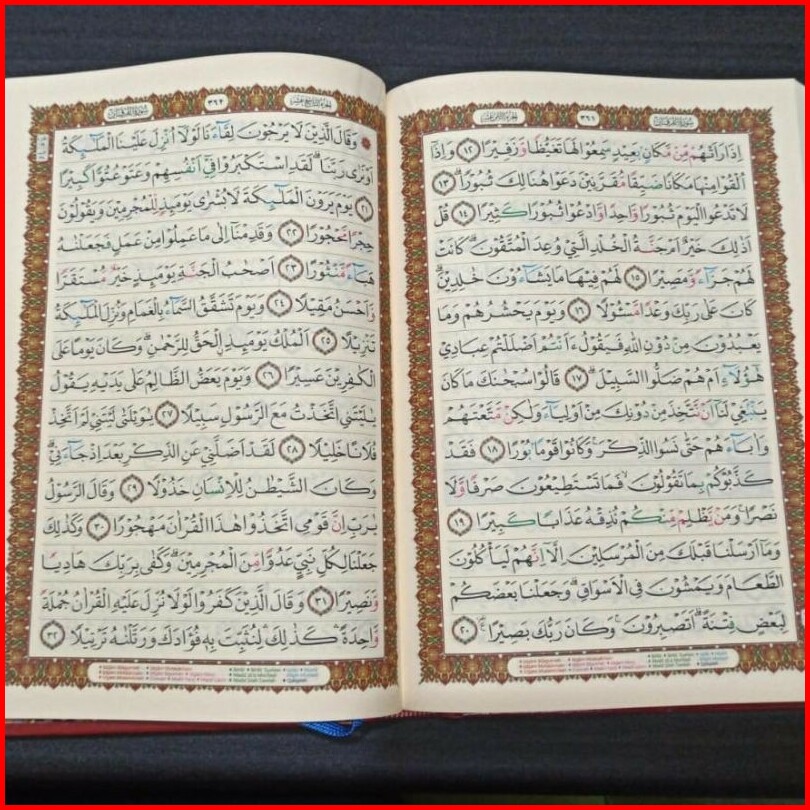 سورة الفرقان
٣٦١
الجزء الثامن عشر
اِذَا رَاَتْهُمْ مِّنْ مَّكَانٍۢ بَعِيْدٍ سَمِعُوْا لَهَا تَغَيُّظًا وَّزَفِيْرًا ١٢ وَاِذَآ
اُلْقُوْا مِنْهَا مَكَانًا ضَيِّقًا مُّقَرَّنِيْنَ دَعَوْا هُنَالِكَ ثُبُوْرًا ١٣
لَا تَدْعُوا الْيَوْمَ ثُبُوْرًا وَّاحِدًا وَّادْعُوْا ثُبُوْرًا كَثِيْرًا ١٤ قُلْ
اَذٰلِكَ خَيْرٌ اَمْ جَنَّةُ الْخُلْدِ الَّتِيْ وُعِدَ الْمُتَّقُوْنَۗ كَانَتْ
لَهُمْ جَزَاۤءً وَّمَصِيْرًا ١٥ لَهُمْ فِيْهَا مَا يَشَاۤءُوْنَ خٰلِدِيْنَۗ
كَانَ عَلٰى رَبِّكَ وَعْدًا مَّسْـُٔوْلًا ١٦ وَيَوْمَ يَحْشُرُهُمْ وَمَا
يَعْبُدُوْنَ مِنْ دُوْنِ اللّٰهِ فَيَقُوْلُ ءَاَنْتُمْ اَضْلَلْتُمْ عِبَادِيْ
هٰٓؤُلَاۤءِ اَمْ هُمْ ضَلُّوا السَّبِيْلَۗ ١٧ قَالُوْا سُبْحٰنَكَ مَا كَانَ
يَنْۢبَغِيْ لَنَآ اَنْ نَّتَّخِذَ مِنْ دُوْنِكَ مِنْ اَوْلِيَاۤءَ وَلٰكِنْ مَّتَّعْتَهُمْ
وَاٰبَاۤءَهُمْ حَتّٰى نَسُوا الذِّكْرَۚ وَكَانُوْا قَوْمًاۢ بُوْرًا ١٨ فَقَدْ
كَذَّبُوْكُمْ بِمَا تَقُوْلُوْنَۙ فَمَا تَسْتَطِيْعُوْنَ صَرْفًا وَّلَا
نَصْرًاۚ وَمَنْ يَّظْلِمْ مِّنْكُمْ نُذِقْهُ عَذَابًا كَبِيْرًا ١٩
وَمَآ اَرْسَلْنَا قَبْلَكَ مِنَ الْمُرْسَلِيْنَ اِلَّآ اِنَّهُمْ لَيَأْكُلُوْنَ
الطَّعَامَ وَيَمْشُوْنَ فِى الْاَسْوَاقِۗ وَجَعَلْنَا بَعْضَكُمْ
لِبَعْضٍ فِتْنَةًۗ اَتَصْبِرُوْنَۚ وَكَانَ رَبُّكَ بَصِيْرًا ٢٠
سورة الفرقان
٣٦٢
الجزء التاسع عشر
وَقَالَ الَّذِيْنَ لَا يَرْجُوْنَ لِقَاۤءَنَا لَوْلَآ اُنْزِلَ عَلَيْنَا الْمَلٰۤىِٕكَةُ
اَوْ نَرٰى رَبَّنَاۗ لَقَدِ اسْتَكْبَرُوْا فِيْٓ اَنْفُسِهِمْ وَعَتَوْ عُتُوًّا كَبِيْرًا
٢١ يَوْمَ يَرَوْنَ الْمَلٰۤىِٕكَةَ لَا بُشْرٰى يَوْمَىِٕذٍ لِّلْمُجْرِمِيْنَ وَيَقُوْلُوْنَ
حِجْرًا مَّحْجُوْرًا ٢٢ وَقَدِمْنَآ اِلٰى مَا عَمِلُوْا مِنْ عَمَلٍ فَجَعَلْنٰهُ
هَبَاۤءً مَّنْثُوْرًا ٢٣ اَصْحٰبُ الْجَنَّةِ يَوْمَىِٕذٍ خَيْرٌ مُّسْتَقَرًّا
وَّاَحْسَنُ مَقِيْلًا ٢٤ وَيَوْمَ تَشَقَّقُ السَّمَاۤءُ بِالْغَمَامِ وَنُزِّلَ الْمَلٰۤىِٕكَةُ
تَنْزِيْلًا ٢٥ اَلْمُلْكُ يَوْمَىِٕذِ ِۨالْحَقُّ لِلرَّحْمٰنِۗ وَكَانَ يَوْمًا عَلَى
الْكٰفِرِيْنَ عَسِيْرًا ٢٦ وَيَوْمَ يَعَضُّ الظَّالِمُ عَلٰى يَدَيْهِ يَقُوْلُ
يٰلَيْتَنِى اتَّخَذْتُ مَعَ الرَّسُوْلِ سَبِيْلًا ٢٧ يٰوَيْلَتٰى لَيْتَنِيْ لَمْ اَتَّخِذْ
فُلَانًا خَلِيْلًا ٢٨ لَقَدْ اَضَلَّنِيْ عَنِ الذِّكْرِ بَعْدَ اِذْ جَاۤءَنِيْۗ
وَكَانَ الشَّيْطٰنُ لِلْاِنْسَانِ خَذُوْلًا ٢٩ وَقَالَ الرَّسُوْلُ
يٰرَبِّ اِنَّ قَوْمِى اتَّخَذُوْا هٰذَا الْقُرْاٰنَ مَهْجُوْرًا ٣٠ وَكَذٰلِكَ
جَعَلْنَا لِكُلِّ نَبِيٍّ عَدُوًّا مِّنَ الْمُجْرِمِيْنَۗ وَكَفٰى بِرَبِّكَ هَادِيًا
وَّنَصِيْرًا ٣١ وَقَالَ الَّذِيْنَ كَفَرُوْا لَوْلَا نُزِّلَ عَلَيْهِ الْقُرْاٰنُ جُمْلَةً
وَّاحِدَةً ۛ كَذٰلِكَ ۛ لِنُثَبِّتَ بِهٖ فُؤَادَكَ وَرَتَّلْنٰهُ تَرْتِيْلًا ٣٢